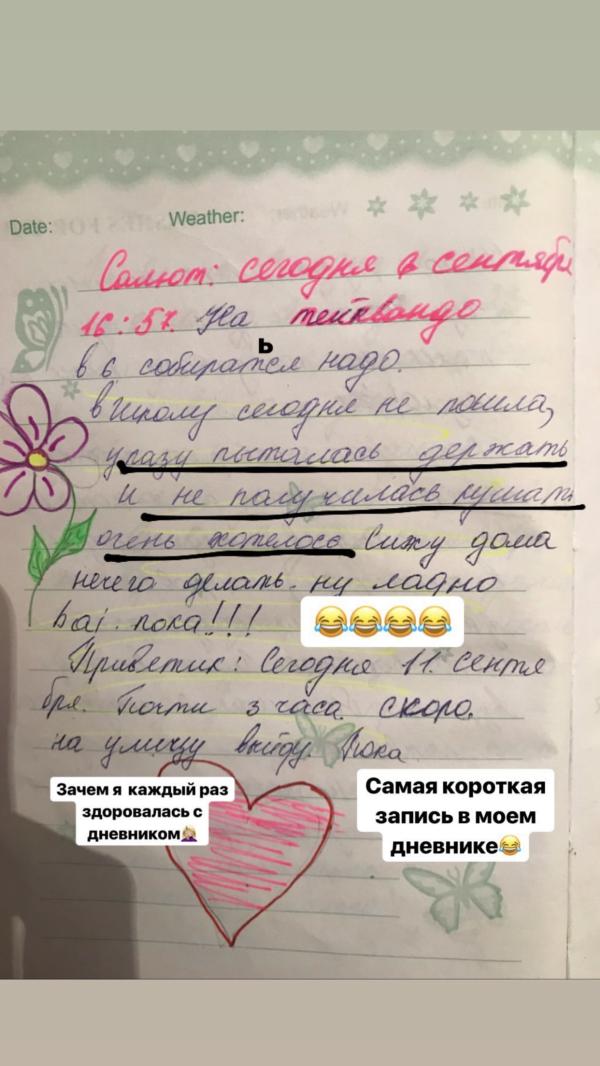 Date:
Weather:
Салют: сегодня 6 сентября
16:57. На тейквандо
ь
в 6 собиратся надо.
в школу сегодня не пошла,
уразу пыталась держать
и не получилась кушать
очень хотелось Сижу дома
нечего делать. ну ладно
baj. пока!!! 😂😂😂😂
Приветик: Сегодня 11 сентя
бря. Почти 3 часа. скоро.
на улицу выйду. Пока
Зачем я каждый раз
здоровалась с
дневником🤦🏼‍♀️
Самая короткая
запись в моем
дневнике😂